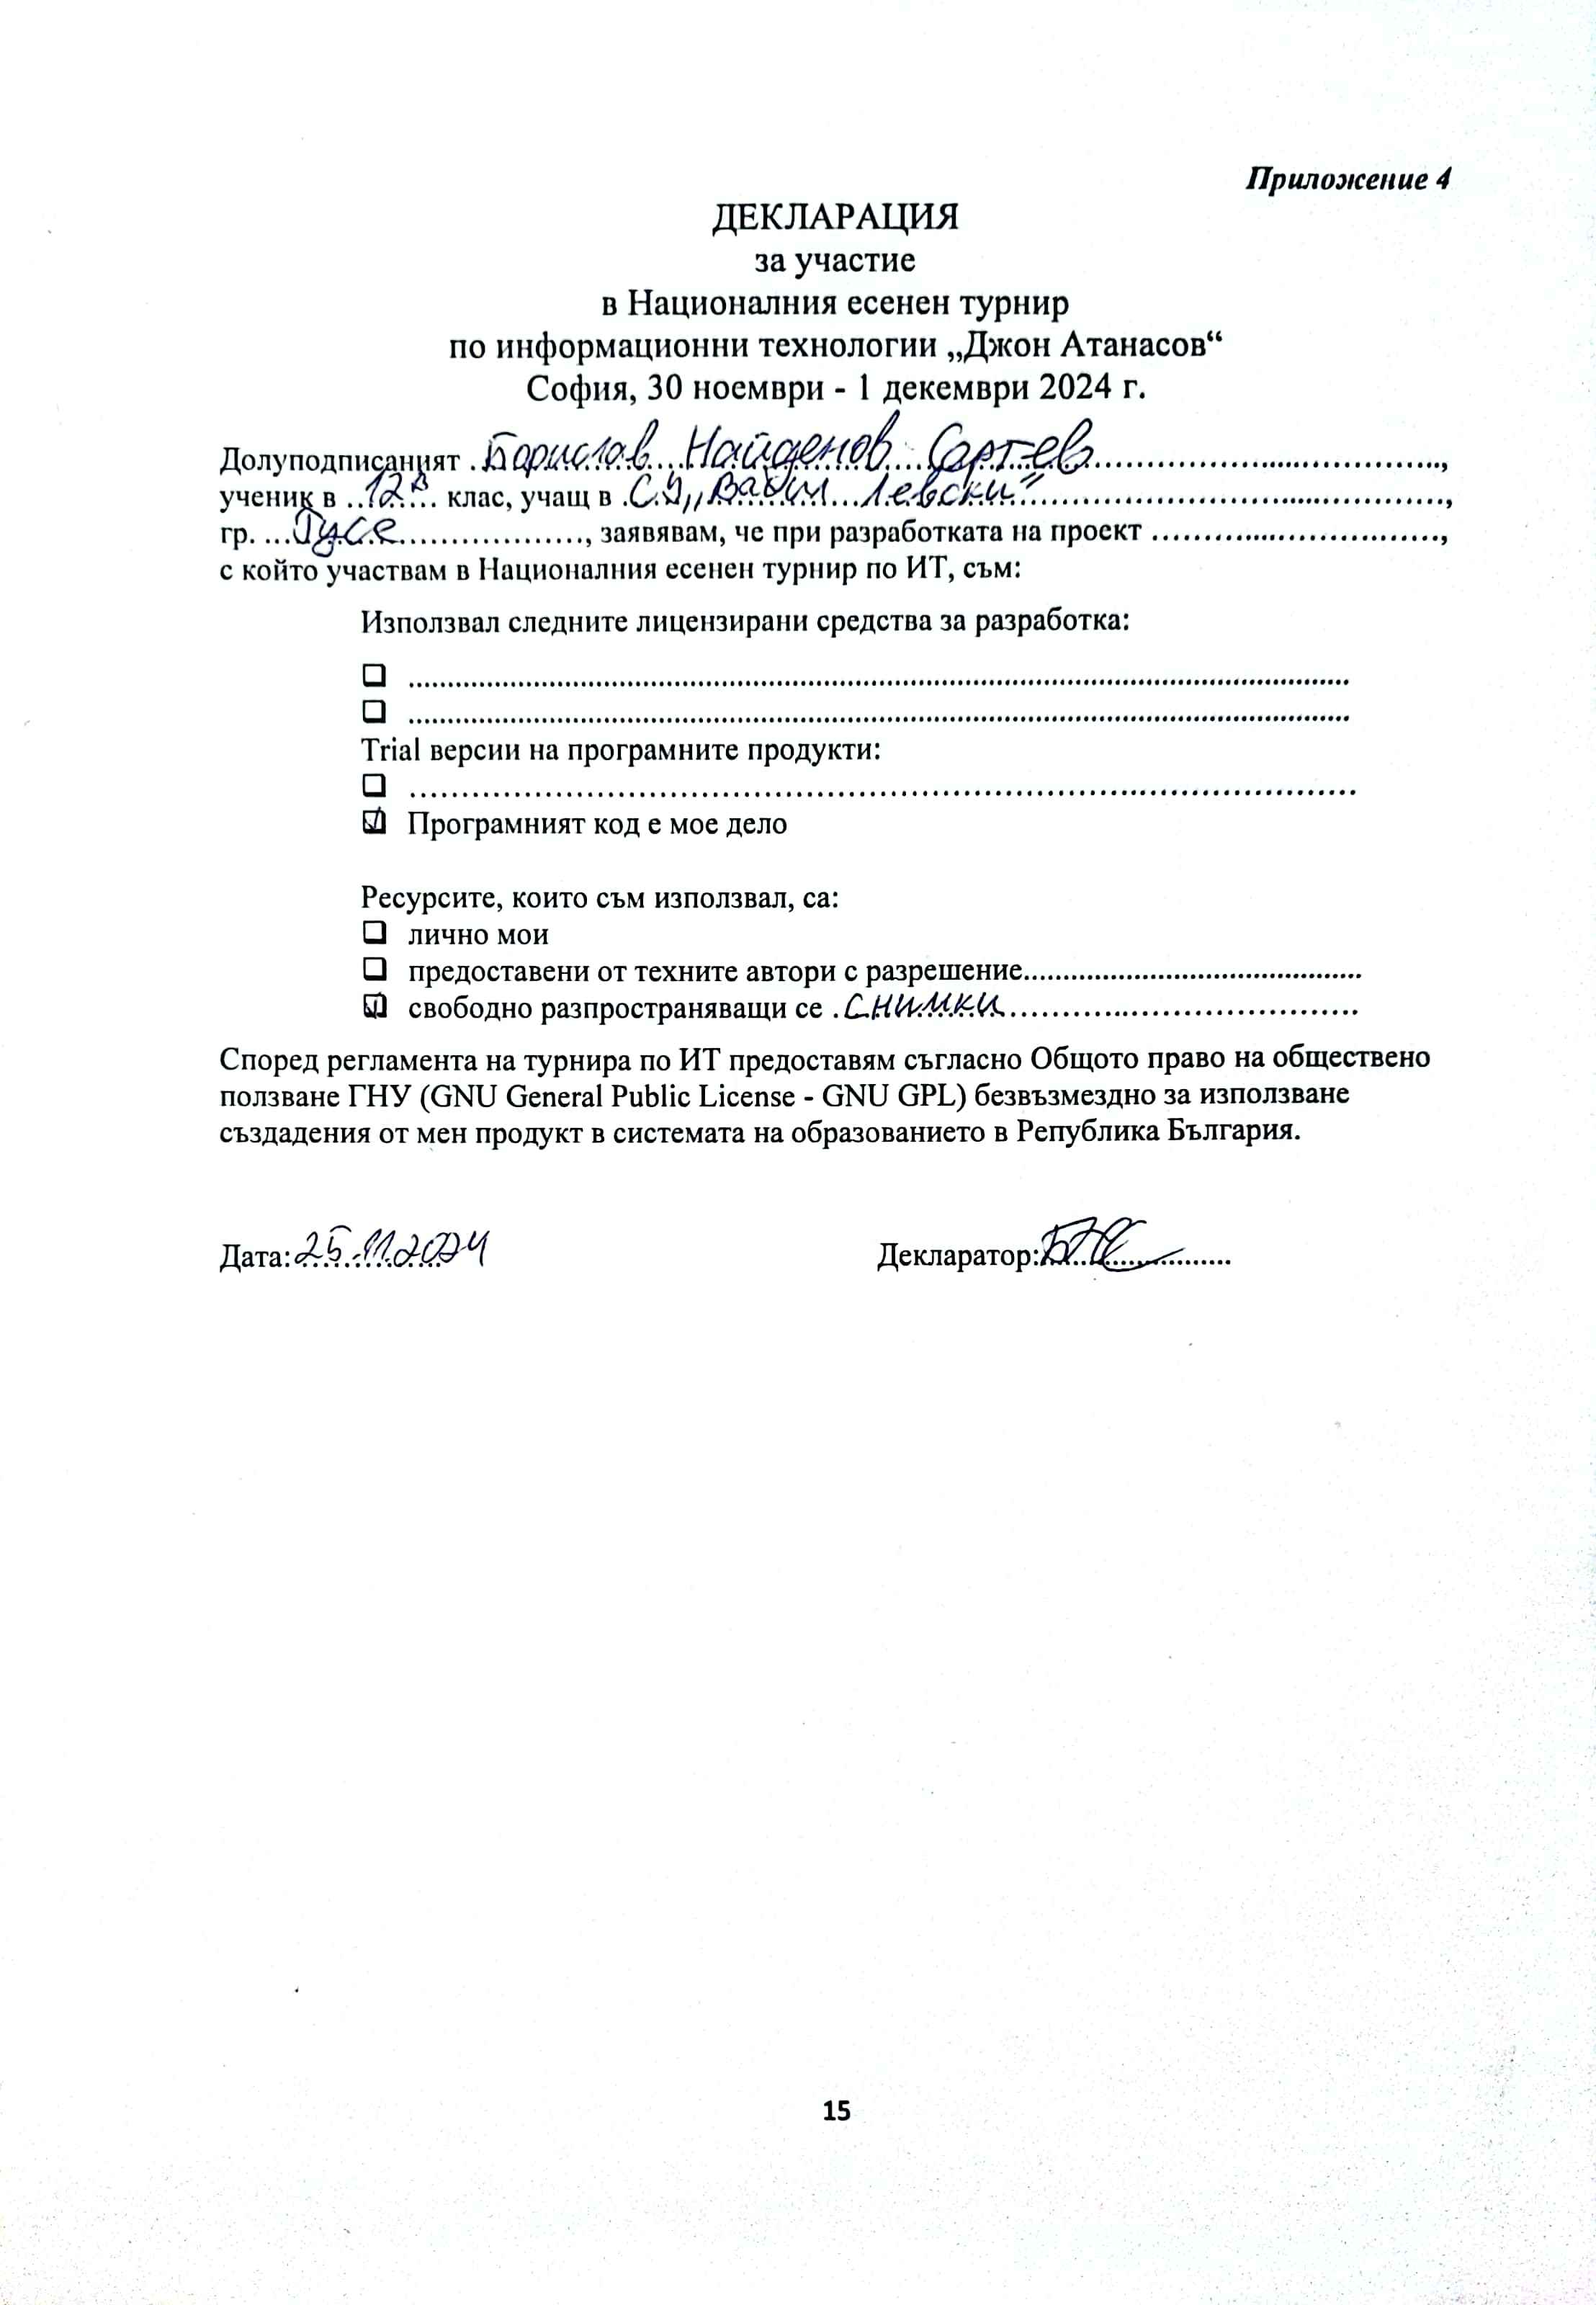 Приложение 4
ДЕКЛАРАЦИЯ
за участие
в Националния есенен турнир
по информационни технологии „Джон Атанасов“
София, 30 ноември - 1 декември 2024 г.
Долуподписаният Борислав Найденов Сартев,
ученик в 12В клас, учащ в СУ „Васил Левски",
гр. Русе, заявявам, че при разработката на проект ..............................,
с който участвам в Националния есенен турнир по ИТ, съм:
Използвал следните лицензирани средства за разработка:
☐ ..............................
☐ ..............................
Trial версии на програмните продукти:
☐ ..............................
☑ Програмният код е мое дело
Ресурсите, които съм използвал, са:
☐ лично мои
☐ предоставени от техните автори с разрешение..............................
☑ свободно разпространяващи се снимки
Според регламента на турнира по ИТ предоставям съгласно Общото право на обществено
ползване ГНУ (GNU General Public License - GNU GPL) безвъзмездно за използване
създадения от мен продукт в системата на образованието в Република България.
Дата: 25.11.2024 Декларатор:
15